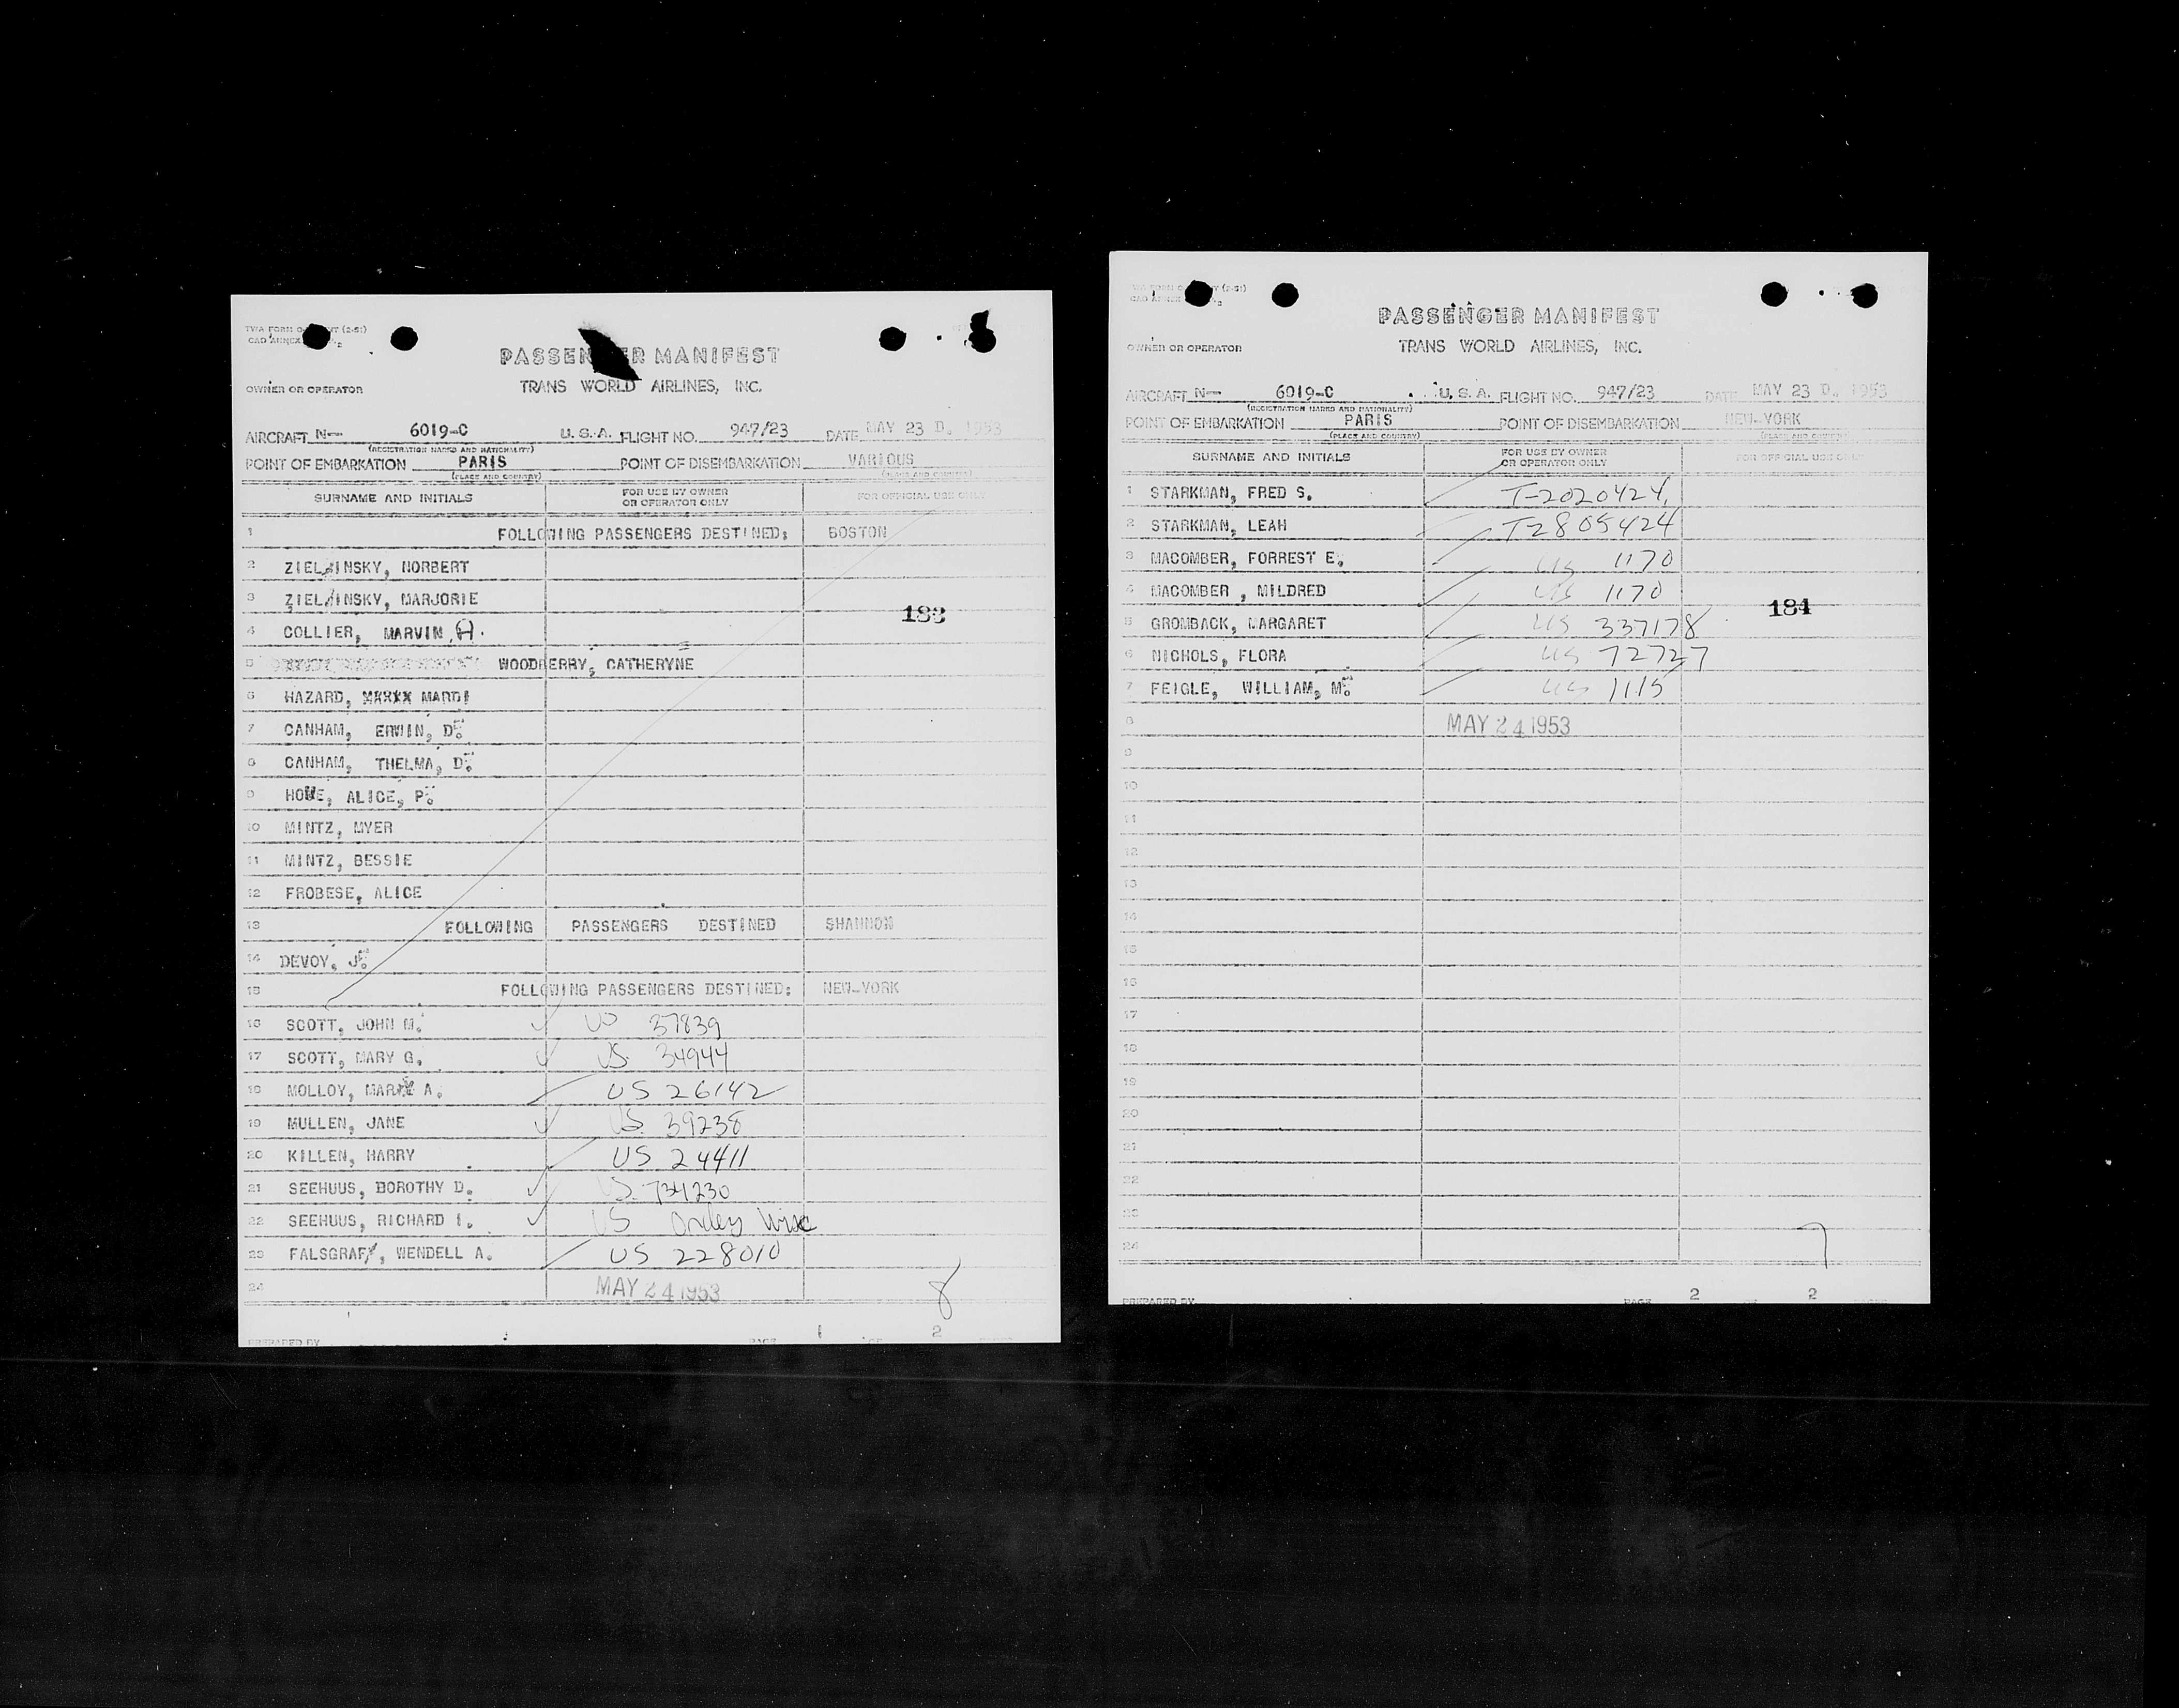 PASSENGER MANIFEST
TRANS WORLD AIRLINES, INC.
OWNER OR OPERATOR
AIRCRAFT N— 6019-C U. S. A. FLIGHT NO. 947/23 DATE MAY 23 D. 1953
(REGISTRATION MARKS AND NATIONALITY)
POINT OF EMBARKATION PARIS POINT OF DISEMBARKATION VARIOUS
(PLACE AND COUNTRY) (PLACE AND COUNTRY)
SURNAME AND INITIALS FOR USE BY OWNER OR OPERATOR ONLY FOR OFFICIAL USE ONLY
1 FOLLOWING PASSENGERS DESTINED: BOSTON
2 ZIELINSKY, NORBERT
3 ZIELINSKY, MARJORIE
183
4 COLLIER, MARVIN H.
5 WOODBERRY, CATHERYNE
6 HAZARD, MARDI
7 CANHAM, ERWIN, D.
8 CANHAM, THELMA, D.
9 ALICE, P.
10 MINTZ, MYER
11 MINTZ, BESSIE
12 FROBESE, ALICE
13 FOLLOWING PASSENGERS DESTINED SHANNON
14 DEVOY, J.
15 FOLLOWING PASSENGERS DESTINED: NEW-YORK
16 SCOTT, JOHN M. US 37839
17 SCOTT, MARY G. US 34944
18 MOLLOY, A. US 26142
19 MULLEN, JANE US 39238
20 KILLEN, HARRY US 24411
21 SEEHUUS, DOROTHY D. US 734230
22 SEEHUUS, RICHARD I. US Wisc
23 FALSGRAF, WENDELL A. US 228010
24 MAY 24 1953 8
PREPARED BY PAGE 1 OF 2 PAGES
PASSENGER MANIFEST
OWNER OR OPERATOR TRANS WORLD AIRLINES, INC.
AIRCRAFT N— 6019-C U. S. A. FLIGHT NO. 947/23 DATE MAY 23 D. 1953
(REGISTRATION MARKS AND NATIONALITY)
POINT OF EMBARKATION PARIS POINT OF DISEMBARKATION NEW-YORK
(PLACE AND COUNTRY) (PLACE AND COUNTRY)
SURNAME AND INITIALS FOR USE BY OWNER OR OPERATOR ONLY FOR OFFICIAL USE ONLY
1 STARKMAN, FRED S. T-2020424
2 STARKMAN, LEAH T2805424
3 MACOMBER, FORREST E. US 1170
4 MACOMBER , MILDRED US 1170
184
5 GROMBACK, MARGARET US 337178
6 NICHOLS, FLORA US 72727
7 FEIGLE, WILLIAM, M. US 1115
8 MAY 24 1953
9
10
11
12
13
14
15
16
17
18
19
20
21
22
23
24 7
PREPARED BY PAGE 2 OF 2 PAGES